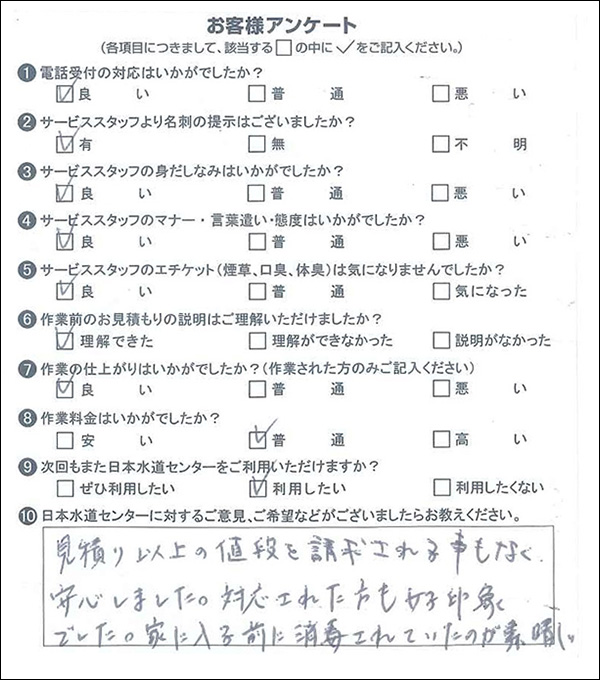 お客様アンケート
(各項目につきまして、該当する□の中に✓をご記入ください。)
❶電話受付の対応はいかがでしたか?
☑良い □普通 □悪い
❷サービススタッフより名刺の提示はございましたか?
☑有 □無 □不明
❸サービススタッフの身だしなみはいかがでしたか?
☑良い □普通 □悪い
❹サービススタッフのマナー・言葉遣い・態度はいかがでしたか?
☑良い □普通 □悪い
❺サービススタッフのエチケット(煙草、口臭、体臭)は気になりませんでしたか?
☑良い □普通 □気になった
❻作業前のお見積もりの説明はご理解いただけましたか?
☑理解できた □理解ができなかった □説明がなかった
❼作業の仕上がりはいかがでしたか?(作業された方のみご記入ください)
☑良い □普通 □悪い
❽作業料金はいかがでしたか?
□安い ☑普通 □高い
❾次回もまた日本水道センターをご利用いただけますか?
□ぜひ利用したい ☑利用したい □利用したくない
❿日本水道センターに対するご意見、ご希望などがございましたらお教えください。
見積り以上の値段を請求される事もなく、
安心しました。対応された方も好印象
でした。家に入る前に消毒されていたのが素晴しい